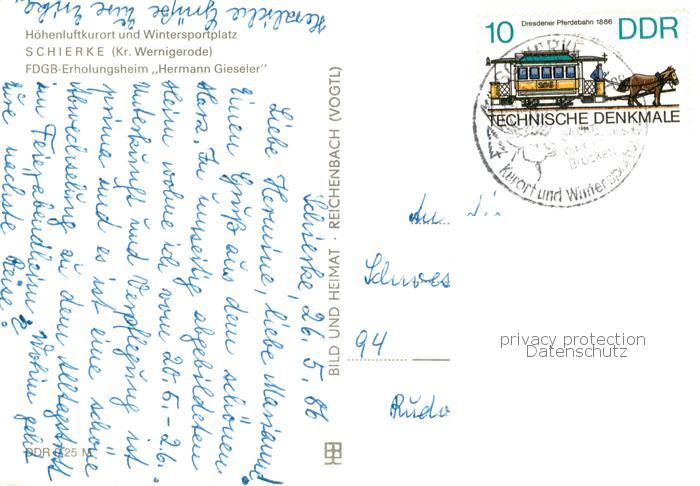 Höhenluftkurort und Wintersportplatz
SCHIERKE (Kr. Wernigerode)
FDGB-Erholungsheim „Hermann Gieseler"
Schierke, 26. 5. 86
Liebe Hermine, liebe Marianne
Einen Gruß aus dem schönen
Harz. Im umseitig abgebildeten
Heim wohne ich vom 20.5.-2.6.
Unterkunft und Verpflegung ist
prima und es ist eine schöne
Abwechselung zu dem Alltagstrott
im Feierabendheim. Wohin geht
Eure nächste Reise?
Herzliche Grüße Eure
DDR 0,25 M
BILD UND HEIMAT · REICHENBACH (VOGTL)
10 Dresdener Pferdebahn 1886 DDR
TECHNISCHE DENKMALE
SCHIERKE
Brocken
Kurort und Wintersport
An die
Schwes
94
Rudo
privacy protection
Datenschutz